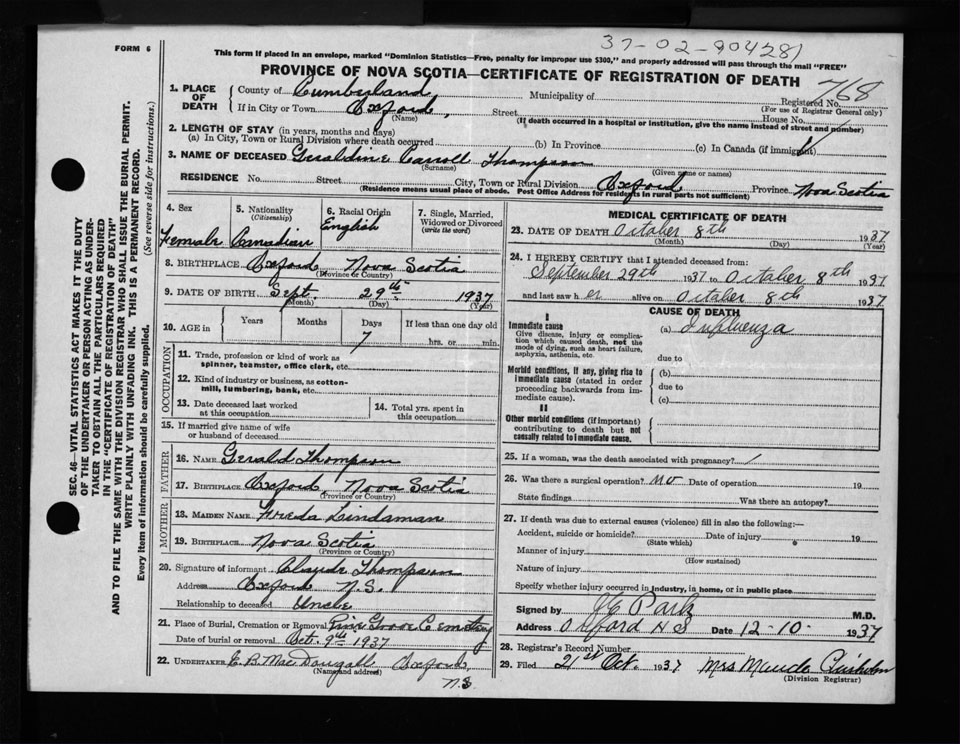 37-02-904281
FORM 6
This form if placed in an envelope, marked "Dominion Statistics—Free, penalty for improper use $300," and properly addressed will pass through the mail "FREE"
PROVINCE OF NOVA SCOTIA—CERTIFICATE OF REGISTRATION OF DEATH
SEC. 46—VITAL STATISTICS ACT MAKES IT THE DUTY
OF THE UNDERTAKER OR PERSON ACTING AS UNDER-
TAKER TO OBTAIN ALL THE PARTICULARS REQUIRED
IN THE "CERTIFICATE OF REGISTRATION OF DEATH"
AND TO FILE THE SAME WITH THE DIVISION REGISTRAR WHO SHALL ISSUE THE BURIAL PERMIT.
WRITE PLAINLY WITH UNFADING INK. THIS IS A PERMANENT RECORD.
Every item of information should be carefully supplied. (See reverse side for instructions.)
1. PLACE OF DEATH
County of Cumberland Municipality of Registered No. 768
(For use of Registrar General only)
If in City or Town Oxford, Street House No.
(Name) (If death occurred in a hospital or institution, give the name instead of street and number)
2. LENGTH OF STAY (in years, months and days)
(a) In City, Town or Rural Division where death occurred (b) In Province (c) In Canada (if immigrant)
3. NAME OF DECEASED Geraldine Carroll Thompson
(Surname) (Given name or names)
RESIDENCE No. Street City, Town or Rural Division Oxford Province Nova Scotia
(Residence means usual place of abode. Post Office Address for residents in rural parts not sufficient)
4. Sex
Female
5. Nationality
(Citizenship)
Canadian
6. Racial Origin
English
7. Single, Married,
Widowed or Divorced
(write the word)
8. BIRTHPLACE Oxford Nova Scotia
(Province or Country)
9. DATE OF BIRTH Sept. 29th 1937
(Month) (Day) (Year)
10. AGE in Years Months Days If less than one day old
7 hrs. or min.
OCCUPATION
11. Trade, profession or kind of work as
spinner, teamster, office clerk, etc.
12. Kind of industry or business, as cotton-
mill, lumbering, bank, etc.
13. Date deceased last worked
at this occupation
14. Total yrs. spent in
this occupation
15. If married give name of wife
or husband of deceased
FATHER
16. NAME Gerald Thompson
17. BIRTHPLACE Oxford, Nova Scotia
(Province or Country)
MOTHER
18. MAIDEN NAME Freda Lindaman
19. BIRTHPLACE Nova Scotia
(Province or Country)
20. Signature of informant Claude Thompson
Address Oxford N.S.
Relationship to deceased Uncle
21. Place of Burial, Cremation or Removal Pine Grove Cemetery
Date of burial or removal Oct. 9th 1937
22. UNDERTAKER E. B. MacDougall Oxford
(Name and address)
N.S
MEDICAL CERTIFICATE OF DEATH
23. DATE OF DEATH October 8th 1937
(Month) (Day) (Year)
24. I HEREBY CERTIFY that I attended deceased from:
September 29th 1937 to October 8th 1937
and last saw her alive on October 8th 1937
CAUSE OF DEATH
I
Immediate cause
Give disease, injury or complica-
tion which caused death, not the
mode of dying, such as heart failure,
asphyxia, asthenia, etc.
(a) Influenza
due to
Morbid conditions, if any, giving rise to
immediate cause (stated in order
proceeding backwards from im-
mediate cause).
(b)
due to
(c)
II
Other morbid conditions (if important)
contributing to death but not
causally related to immediate cause.
25. If a woman, was the death associated with pregnancy? /
26. Was there a surgical operation? no Date of operation 19
State findings Was there an autopsy?
27. If death was due to external causes (violence) fill in also the following:—
Accident, suicide or homicide? Date of injury 19
(State which)
Manner of injury
(How sustained)
Nature of injury
Specify whether injury occurred in industry, in home, or in public place
Signed by J E Park M.D.
Address Oxford N S Date 12-10- 1937
28. Registrar's Record Number
29. Filed 21st Oct. 1937 Mrs Maude Chisholm
(Division Registrar)